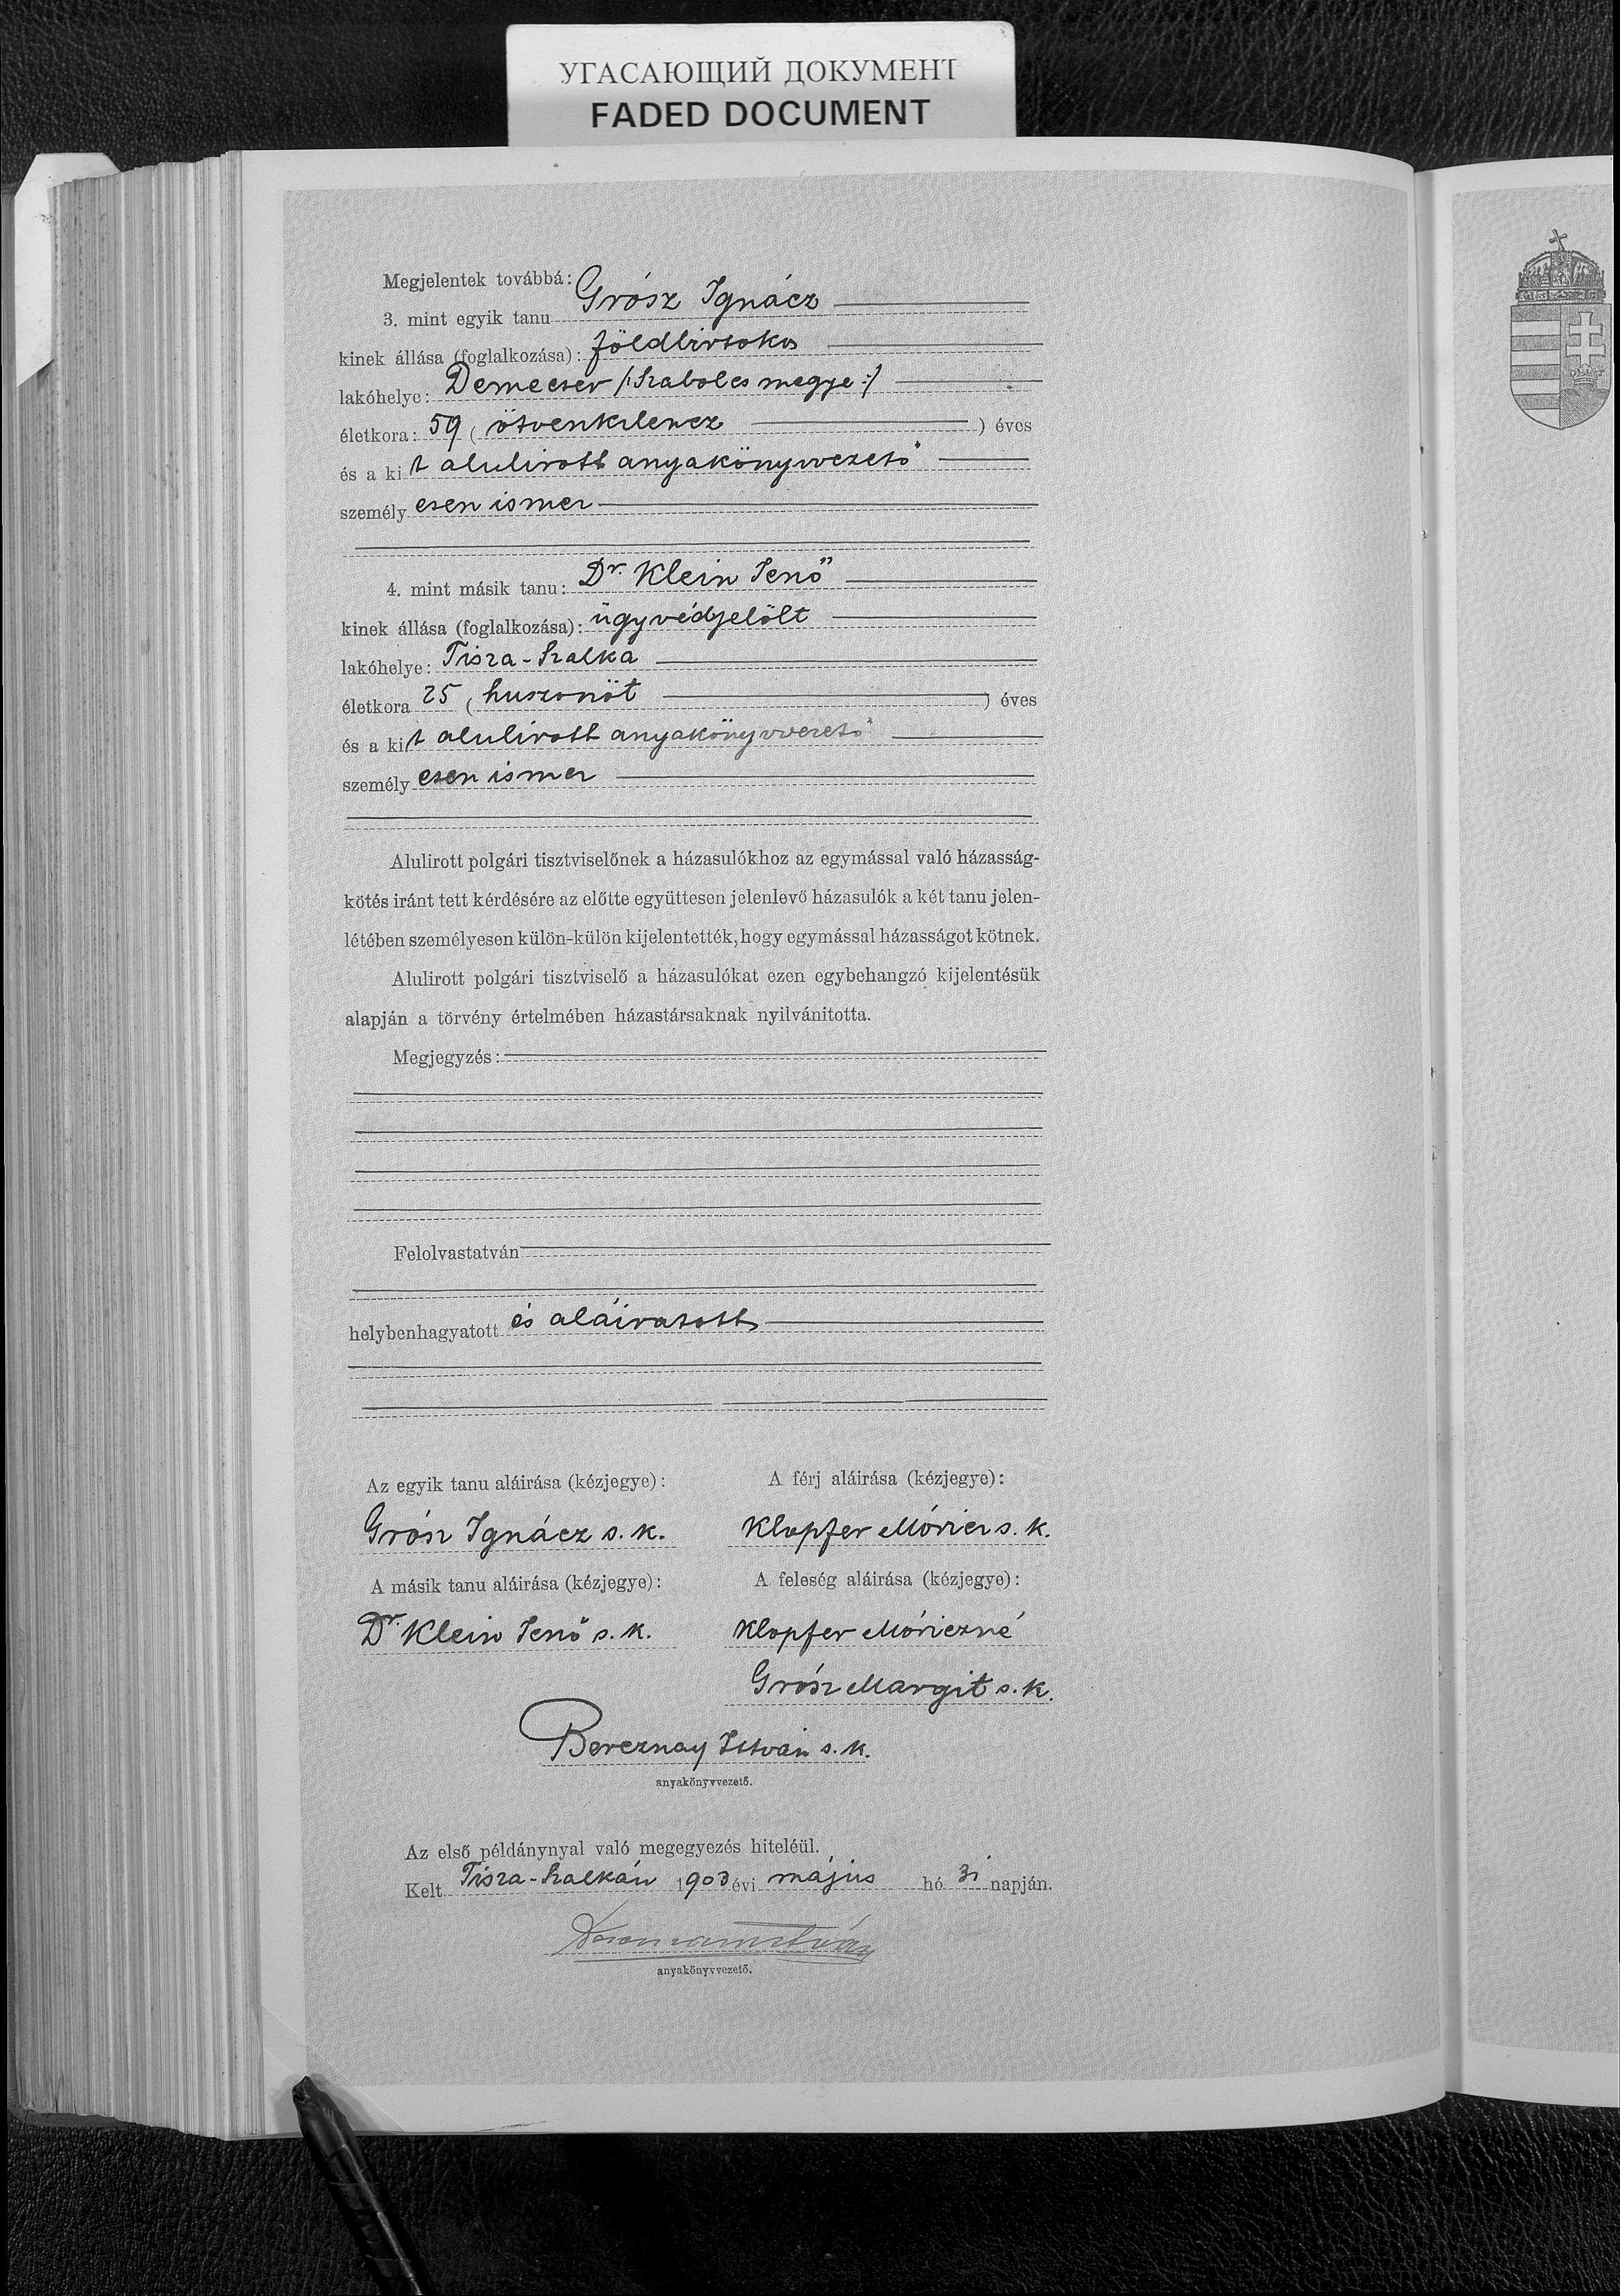 УГАСАЮЩИЙ ДОКУМЕНТ
FADED DOCUMENT
Megjelentek továbbá:
3. mint egyik tanu Grósz Ignácz
kinek állása (foglalkozása): földbirtokos
lakóhelye: Demecser /:Szabolcs megye:/
életkora: 59 (ötvenkilencz) éves
és a kit alulirott anyakönyvvezető
személyesen ismer
4. mint másik tanu: Dr. Klein Jenő
kinek állása (foglalkozása): ügyvédjelölt
lakóhelye: Tisza-Szalka
életkora 25 (huszonöt) éves
és a kit alulirott anyakönyvvezető
személyesen ismer
Alulirott polgári tisztviselőnek a házasulókhoz az egymással való házasság-
kötés iránt tett kérdésére az előtte együttesen jelenlevő házasulók a két tanu jelen-
létében személyesen külön-külön kijelentették, hogy egymással házasságot kötnek.
Alulirott polgári tisztviselő a házasulókat ezen egybehangzó kijelentésük
alapján a törvény értelmében házastársaknak nyilvánitotta.
Megjegyzés:
Felolvastatván
helybenhagyatott és aláiratott
Az egyik tanu aláirása (kézjegye):
Grósz Ignácz s. k.
A férj aláirása (kézjegye):
Klopfer Móricz s. k.
A másik tanu aláirása (kézjegye):
Dr. Klein Jenő s. k.
A feleség aláirása (kézjegye):
Klopfer Móriczné
Grósz Margit s. k.
Bereznay István s. k.
anyakönyvvezető.
Az első példánynyal való megegyezés hiteléül.
Kelt Tisza-Szalkán 1903 évi május hó 3i napján.
anyakönyvvezető.